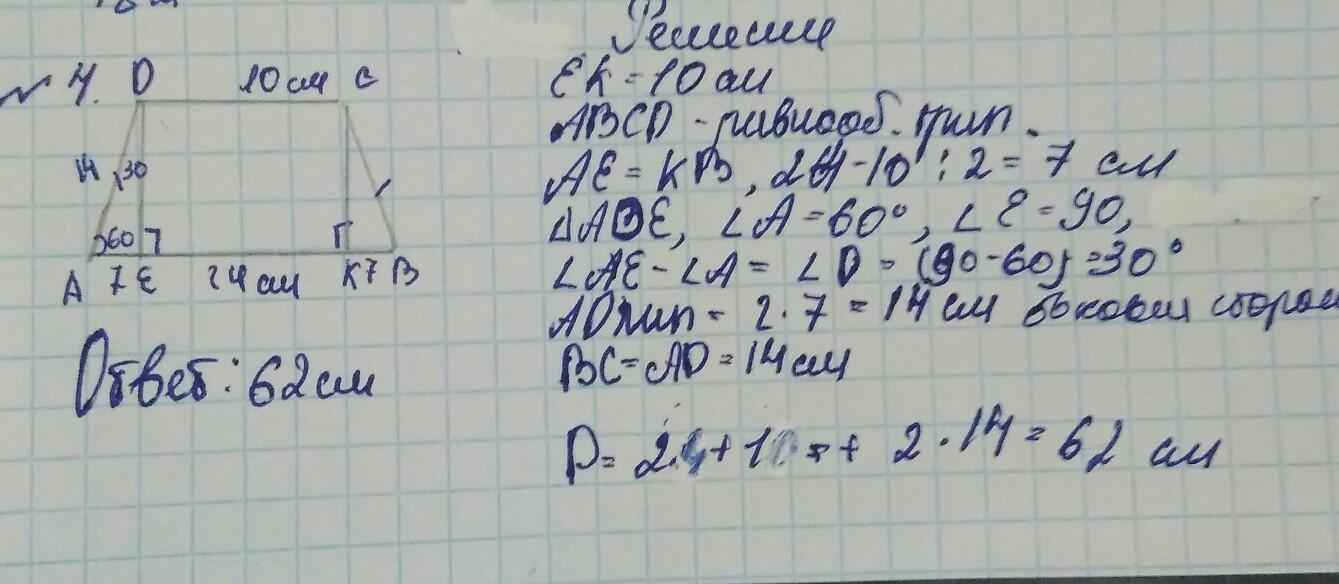 Решение
№ 4. D 10 см C
14 30
60
A 7 E 24 см K 7 B
Ответ: 62 см
EK = 10 см
ABCD - равнооб. трап.
AE = KB, 24-10 : 2 = 7 см
ΔADE, ∠A = 60°, ∠E = 90,
∠AE - ∠A = ∠D = (90-60) = 30°
= 2·7 = 14 см боковая сторон
BC = AD = 14 см
P = 24 + 10 + 2·14 = 62 см